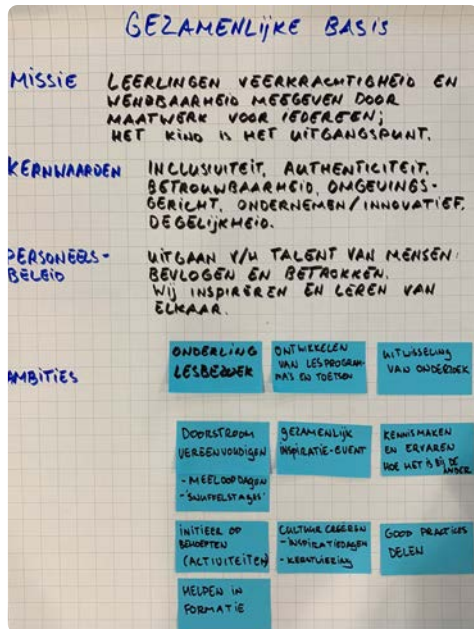 GEZAMENLIJKE BASIS
MISSIE
LEERLINGEN VEERKRACHTIGHEID EN
WENDBAARHEID MEEGEVEN DOOR
MAATWERK VOOR IEDEREEN;
HET KIND IS HET UITGANGSPUNT.
KERNWAARDEN
INCLUSIVITEIT, AUTHENTICITEIT,
BETROUWBAARHEID, OMGEVINGS-
GERICHT, ONDERNEMEN/INNOVATIEF,
DEGELIJKHEID.
PERSONEELS-
BELEID
UITGAAN V/H TALENT VAN MENSEN:
BEVLOGEN EN BETROKKEN.
WIJ INSPIREREN EN LEREN VAN
ELKAAR.
AMBITIES
ONDERLING
LESBEZOEK
ONTWIKKELEN
VAN LESPROGRAM-
MA'S EN TOETSEN
UITWISSELING
VAN ONDERZOEK
DOORSTROOM
VEREENVOUDIGEN
- MEELOOPDAGEN
- 'SNUFFELSTAGES'
GEZAMENLIJK
INSPIRATIE-EVENT
KENNISMAKEN
EN ERVAREN
HOE HET IS BIJ DE
ANDER
INITIEER OP
BEHOEFTEN
(ACTIVITEITEN)
CULTUUR CREËREN
- INSPIRATIEDAGEN
- KERSTVIERING
GOOD PRACTICES
DELEN
HELPEN IN
FORMATIE